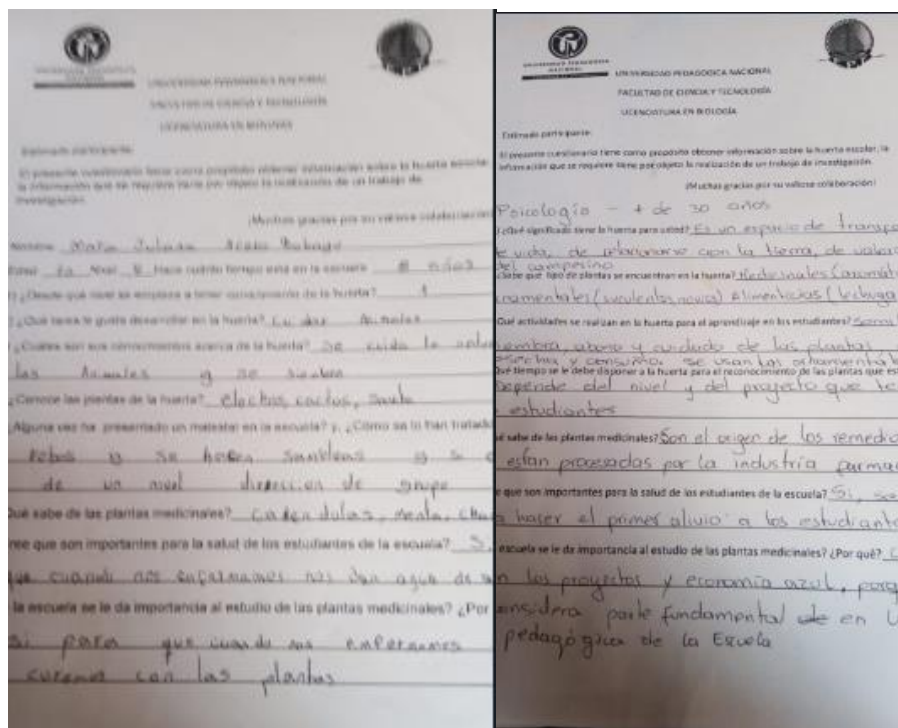 UNIVERSIDAD PEDAGÓGICA NACIONAL
FACULTAD DE CIENCIA Y TECNOLOGÍA
LICENCIATURA EN BIOLOGÍA
Estimado participante:
El presente cuestionario tiene como propósito obtener información sobre la huerta escolar,
la información que se requiere tiene por objeto la realización de un trabajo de
investigación.
¡Muchas gracias por su valiosa colaboración!
Nombre
Edad Nivel Hace cuánto tiempo está en la escuela 8 años
¿Desde qué nivel se empieza a tener conocimiento de la huerta? 1
¿Qué tarea le gusta desarrollar en la huerta? Cuidar Animales
¿Cuáles son sus conocimientos acerca de la huerta? Se cuida
los Animales y se siembra
¿Conoce las plantas de la huerta? cactus,
¿Alguna vez ha presentado un malestar en la escuela? y, ¿Cómo se lo han tratado
y se hacen y si
de un nivel dirección de grupo
Qué sabe de las plantas medicinales? menta,
ree que son importantes para la salud de los estudiantes de la escuela? S
que cuando nos enfermamos nos dan agua de
la escuela se le da importancia al estudio de las plantas medicinales? ¿Por
Si para que cuando nos enfermamos
curemos con las plantas
UNIVERSIDAD PEDAGÓGICA NACIONAL
UNIVERSIDAD PEDAGÓGICA NACIONAL
FACULTAD DE CIENCIA Y TECNOLOGÍA
LICENCIATURA EN BIOLOGÍA
Estimado participante:
El presente cuestionario tiene como propósito obtener información sobre la huerta escolar, la
información que se requiere tiene por objeto la realización de un trabajo de investigación.
¡Muchas gracias por su valiosa colaboración!
Psicología - + de 30 años
¿Qué significado tiene la huerta para usted? Es un espacio de transp
e vida, de relacionarse con la tierra, de valor
del campesino
¿Sabe que tipo de plantas se encuentran en la huerta? Medicinales (aromát
rnamentales (suculentas, novios) Alimenticias (lechuga
Qué actividades se realizan en la huerta para el aprendizaje en los estudiantes?
iembra, abono y cuidado de las plantas
osecha y consumo. se usan las ornamentál
Qué tiempo se le debe disponer a la huerta para el reconocimiento de las plantas que est
Depende del nivel y del proyecto que te
estudiantes
ué sabe de las plantas medicinales? Son el origen de los remedio
estan procesadas por la industria farma
e que son importantes para la salud de los estudiantes de la escuela? Si, se
a hacer el primer alivio a los estudiante
escuela se le da importancia al estudio de las plantas medicinales? ¿Por qué?
n los proyectos y economía azul, porq
nsidera parte fundamental de en l
pedagógica de la Escuela